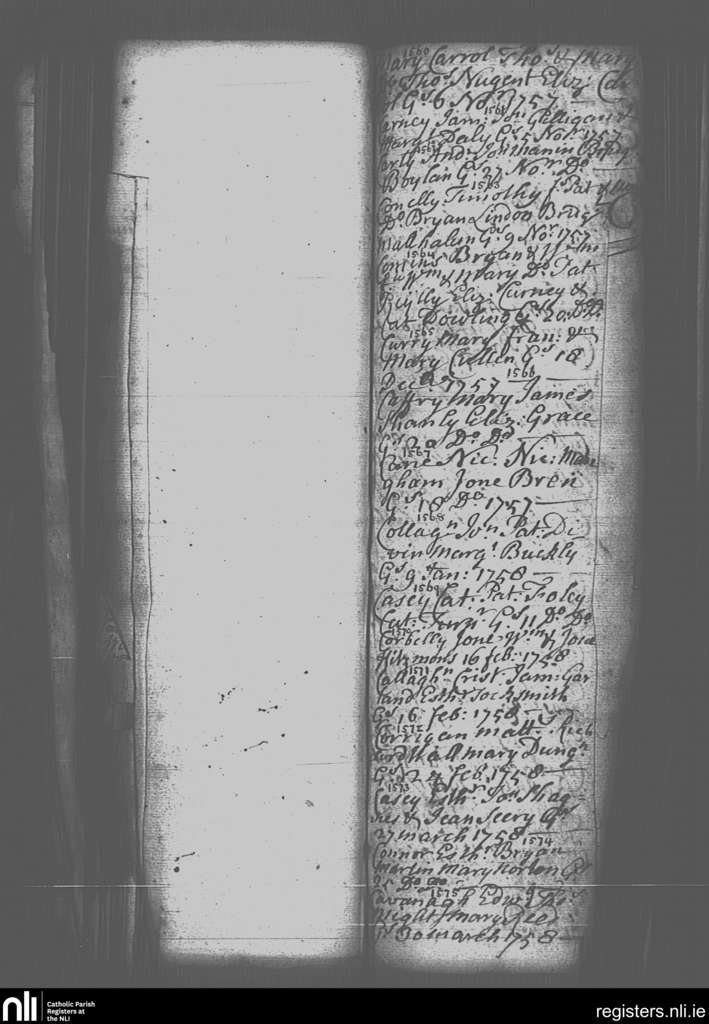 1560
Mary Carrol Thos & Mary
Thos Nugent Eliz:
Gs 6 Nor 1757
1561
Jam: Jon Gelligan &
Margt Daly Gs 5 Nor 1757
1562
And: Jonathanin
Boylan Gs 27 Nor Do
1563
Conelly Timothy Pat & Mary
Do Bryan Lindon Bridg
Mallhalun Gs 9 Nor 1757
1564
Bryan &
& Mary Do Pat
Reilly Eliz: Curney &
Cat Dowling Gs 20 Do Do
1565
Curry Mary fran: &
Mary Cullen Gs 18
Decr 1757
1566
Caffry Mary James
Shanly Eliz: Grace
Gs 20 Do Do
1567
Cane Nic: Nic: Man
gham Jone Bren
Gs 18 Do 1757
1568
Collagn Jon Pat: Di
vin Margt Buckly
Gs 9 Jan: 1758
1569
Casey Cat: Pat: Foley
Cat: Gs 11 Do Do
1570
Corbelly Jone Wm & Jone
fitzmons 16 feb: 1758
1571
Callaghn Crist Jam: Gar
land Esthr Locksmith
Gs 16 feb: 1758
1572
Corrigan Matt: Rich
ord Hall Mary Dungn
Gs 24 feb 1758
1573
Casey Esthr Jon Shag
nes & Jean Seery Gs
27 March 1758
1574
Connor Esthr Bryan
Martin Mary Norton Gs
25 Do Do
1575
Cavanagh Edwd Thos
Wight Mary
Gs 30 March 1758
nli
Catholic Parish
Registers at
the NLI
registers.nli.ie